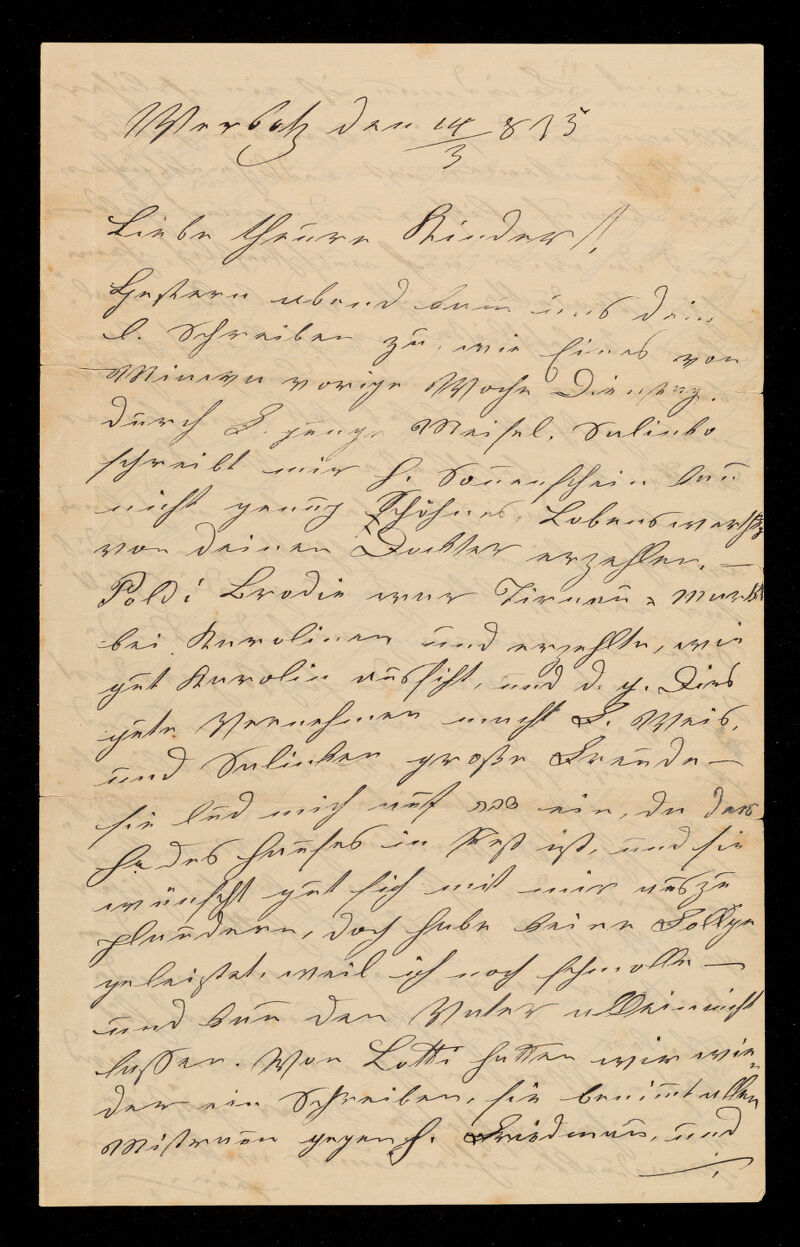 Werbetz den 14/3 875
Liebe theure Kinder!
Gestern abend kam uns dein
l. Schreiben zu, wie Eines von
Minera vorige Woche Dienstag.
durch H. junge Meisel. Salinka
schreibt mir H. Sonenschein kan
nicht genug Schöhnes, Lobenswerthes
von deinen Dockter erzehlen. —
Poldi Brodie war Tirnau = Markt
bei Karolinen und erzehlte, wie
gut Karolin aussiht, und d. g. Dies
gute Vernehmen macht H. Weis,
und Salinken große Freude —
sie lud mich auf שבת ein, da der
H. des Hauses in Pest ist, und sie
wünscht gut sich mit mir auszu
plaudern, doch habe keine Follge
geleistet, weil ich noch schmolle —
und kan den Vater allein nicht
lassen. Von Lotti hatten wir wie=
der ein Schreiben, sie benimt allen
Mistrauen gegen H. Friedman, und